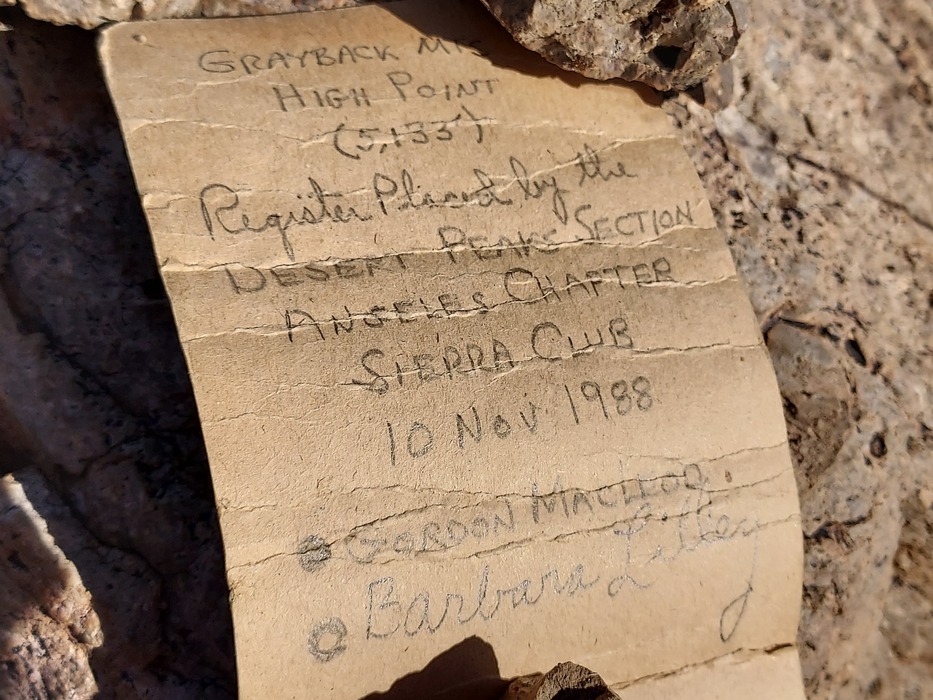 GRAYBACK MTS
HIGH POINT
(5,135')
Register Placed by the
DESERT PEAKS SECTION
ANGELES CHAPTER
SIERRA CLUB
10 NOV 1988
GORDON MACLEOD.
Barbara Lilley